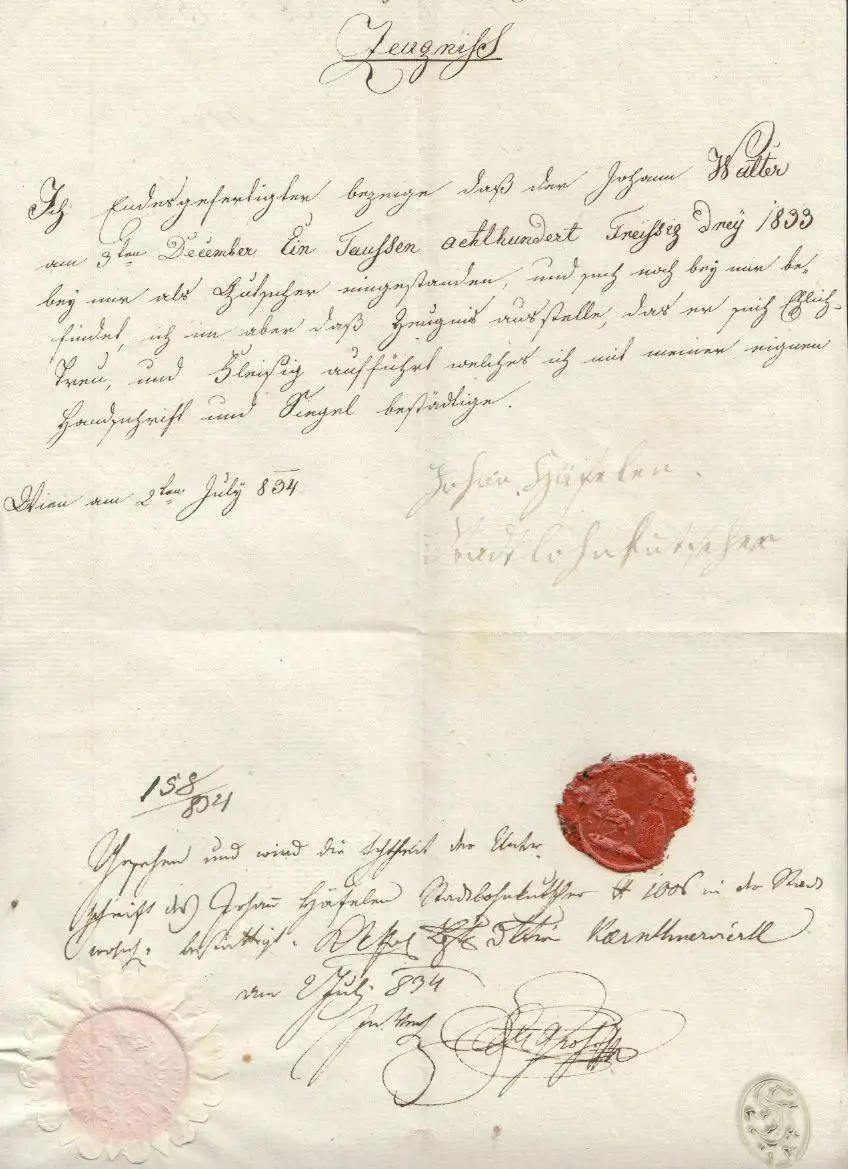 Zeugniss
Ich Endesgefertigter bezeige daß der Johann Walter
am 3ten December Ein Taussen achthundert Treissig drey 1833
bey mir als Kutscher eingestanden, und sich noch bey mir be-
findet, ich im aber daß Zeugnis ausstelle, das er sich Ehlich-
Treu, und Fleisig aufführt welches ich mit meiner eignen
Handschrift und Siegel bestädtige.
Wien am 2ten July 834
Johan Häfelen.
Stadtlohnkutscher
158/834
Gesehen und wird die Echtheit der Unter-
schrift des Johann Häfelen Stadtlohnkutscher # 1006 in der Stadt
wohnh. bestättigt. Kaernthnerviertl
am 2 July 834